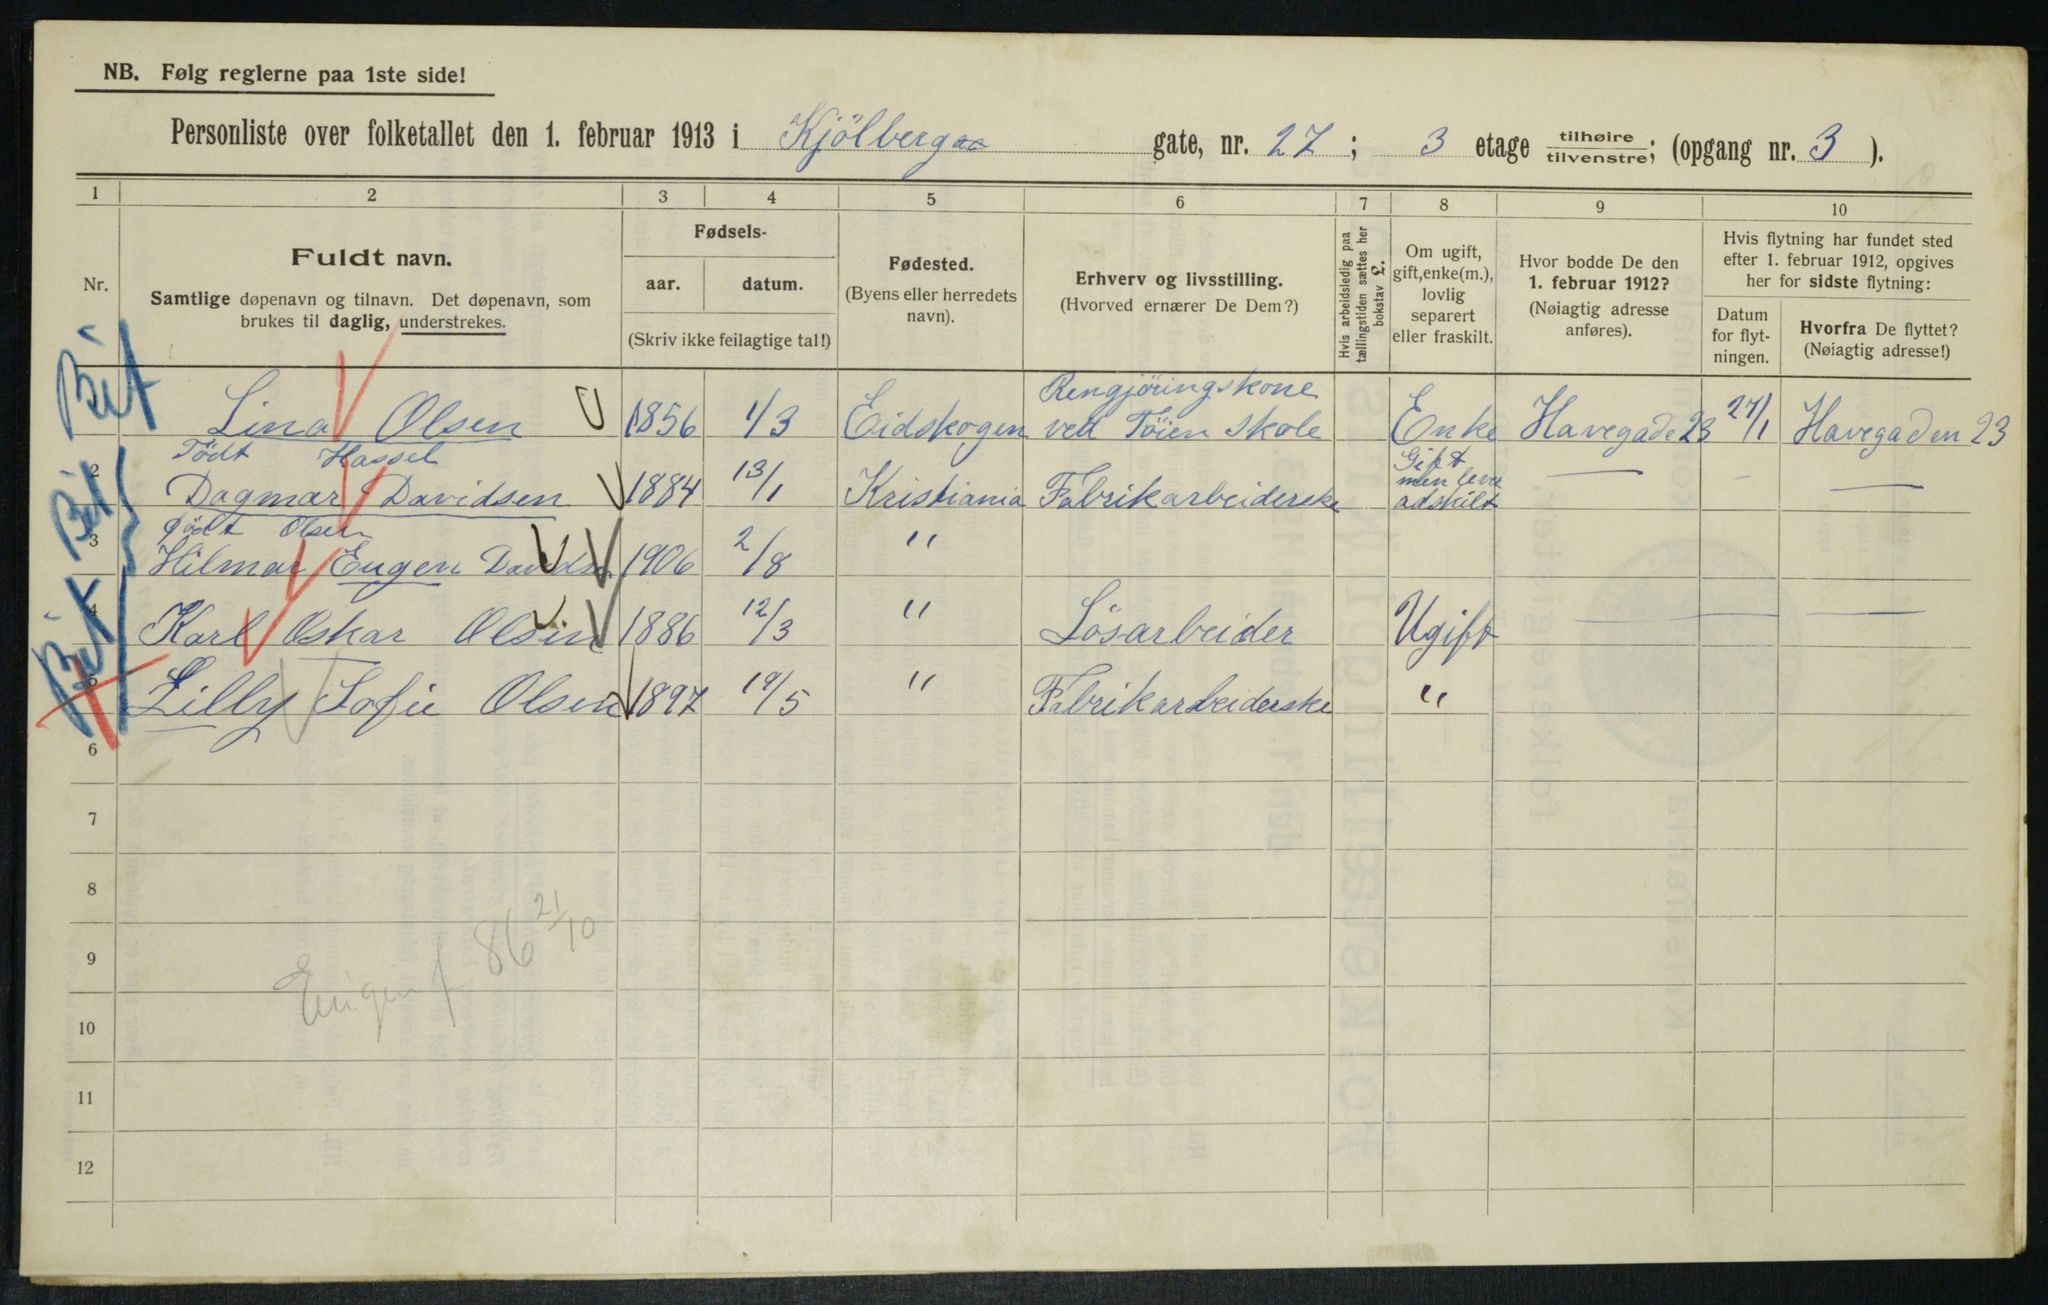 NB. Følg reglerne paa 1ste side!
Personliste over folketallet den 1. februar 1913 i Kjölberg gate, nr. 27; 3 etage tilhøire/tilvenstre; (opgang nr. 3).
1 2 3 4 5 6 7 8 9 10
Nr.
Fuldt navn.
Samtlige døpenavn og tilnavn. Det døpenavn, som
brukes til daglig, understrekes.
Fødsels-
aar. datum.
(Skriv ikke feilagtige tal!)
Fødested.
(Byens eller herredets
navn).
Erhverv og livsstilling.
(Hvorved ernærer De Dem?)
Hvis arbeidsledig paa
tællingstiden sættes her
bokstav L.
Om ugift,
gift, enke(m.),
lovlig
separert
eller fraskilt.
Hvor bodde De den
1. februar 1912?
(Nøiagtig adresse
anføres).
Hvis flytning har fundet sted
efter 1. februar 1912, opgives
her for sidste flytning:
Datum
for flyt-
ningen.
Hvorfra De flyttet?
(Nøiagtig adresse!)
Rengjöringskone
Lina Olsen 1856 1/3 Eidskogen ved Töien skole Enke Havegade 23 27/1 Havegaden 23
Födt Hassel
Gift
men lever
2 Dagmar Davidsen 1884 13/1 Kristiania Fabrikarbeiderske adskilt — - —
födt Olsen
3 Hilmar Eugen Davidsen 1906 2/8 "
4 Karl Oskar Olsen 1886 12/3 " Lösarbeider Ugift — — —
5 Lilly Sofie Olsen 1897 19/5 " Fabrikarbeiderske "
6
7
8
86 21/10
9
10
11
12